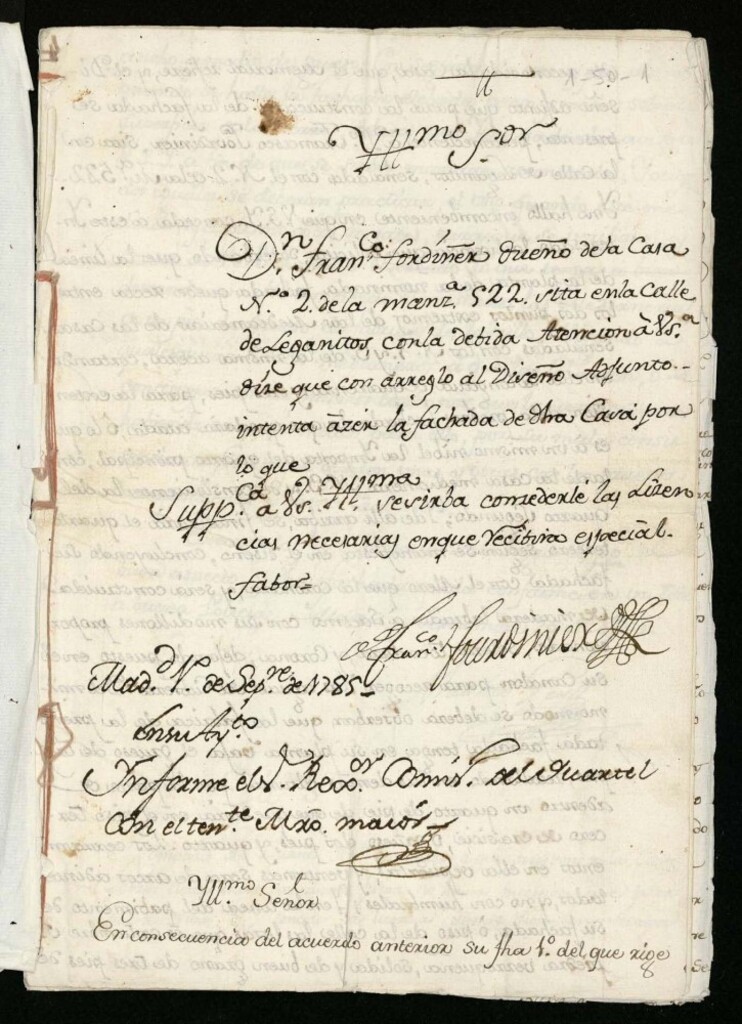 Yllmo Sor
Dn. Franco. fordiner dueño de la Casa
N.o 2. de la manz.a 522. sita en la Calle
de Leganitos, con la debida Atencion â VS.a
dize que con arreglo al Diseño Adjunto
intenta azer la fachada de dha Casa por
lo que
Supp.ca a VS. Yll.ma se sirba concederle las Lizen
cias necesarias en que recibira especial
fabor=
Franco. Fourdinier
Mad.d 1o. de Sep.re de 1785=
En su Ay.to
Informe el S.r Rexor. Comis.o del Quartel
Con el ten.te Mro. maior
Yllmo. Señor
En consecuencia del acuerdo anterior su fha 1o. del que rige